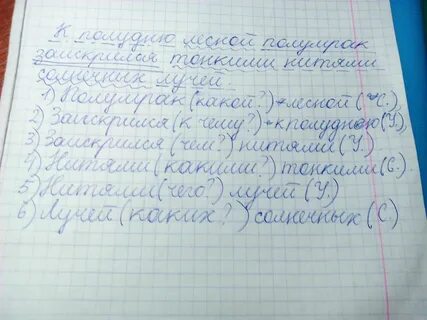 К полудню лесной полумрак
заискрился тонкими нитями
солнечных лучей.
1) Полумрак (какой?) - лесной (С.)
2) Заискрился (к чему?) - к полудню (У.)
3) Заискрился (чем?) нитями (У.)
4) Нитями (какими?) тонкими (С.)
5) Нитями (чего?) лучей (У.)
6) Лучей (каких?) солнечных (С)